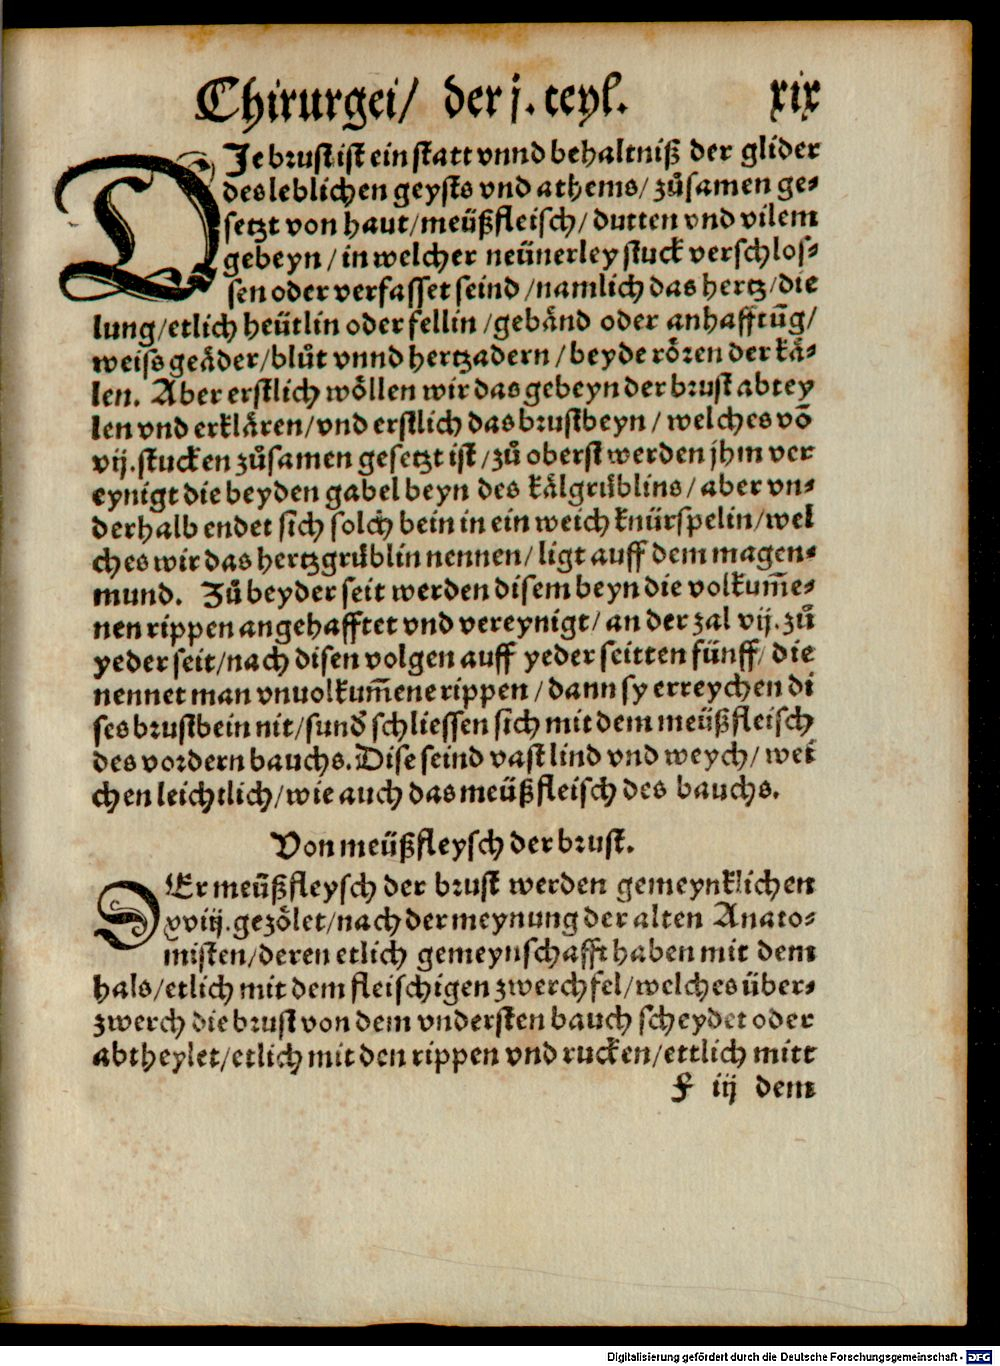 Chirurgei/ der j. teyl. xix
DIe brust ist ein statt vnnd behaltniß der glider
des leblichen geysts vnd athems/ zůsamen ge-
setzt von haut/meüßfleisch/ dutten vnd vilem
gebeyn/ in welcher neünerley stuck verschlos-
sen oder verfasset seind/namlich das hertz/die
lung/etlich heütlin oder fellin/gebånd oder anhafftūg/
weiss geåder/blůt vnnd hertzadern/beyde rözen der kå-
len. Aber erstlich wöllen wir das gebeyn der brust abtey
len vnd erklåren/vnd erstlich das brustbeyn/ welches võ
vij. stucken zůsamen gesetzt ist/zů oberst werden jhm ver
eynigt die beyden gabel beyn des kålgrüblins/aber vn-
derhalb endet sich solch bein in ein weich knürspelin/wel
ches wir das hertzgrüblin nennen/ligt auff dem magen-
mund. Zů beyder seit werden disem beyn die volkum̃e-
nen rippen angehafftet vnd vereynigt/an der zal vij. zů
yeder seit/nach disen volgen auff yeder seitten fünff/ die
nennet man vnuolkum̃ene rippen/dann sy erreychen di
ses brustbein nit/sund̃ schliessen sich mit dem meüßfleisch
des vordern bauchs. Dise seind vast lind vnd weych/ wei
chen leichtlich/wie auch das meüßfleisch des bauchs.
Von meüßfleysch der brust.
DEr meüßfleysch der brust werden gemeynklichen
xviij. gezölet/nach der meynung der alten Anato-
misten/deren etlich gemeynschafft haben mit dem
hals/etlich mit dem fleischigen zwerchfel/welches über-
zwerch die brust von dem vndersten bauch scheydet oder
abtheylet/etlich mit den rippen vnd rucken/ettlich mitt
F iij dem
Digitalisierung gefördert durch die Deutsche Forschungsgemeinschaft - DFG